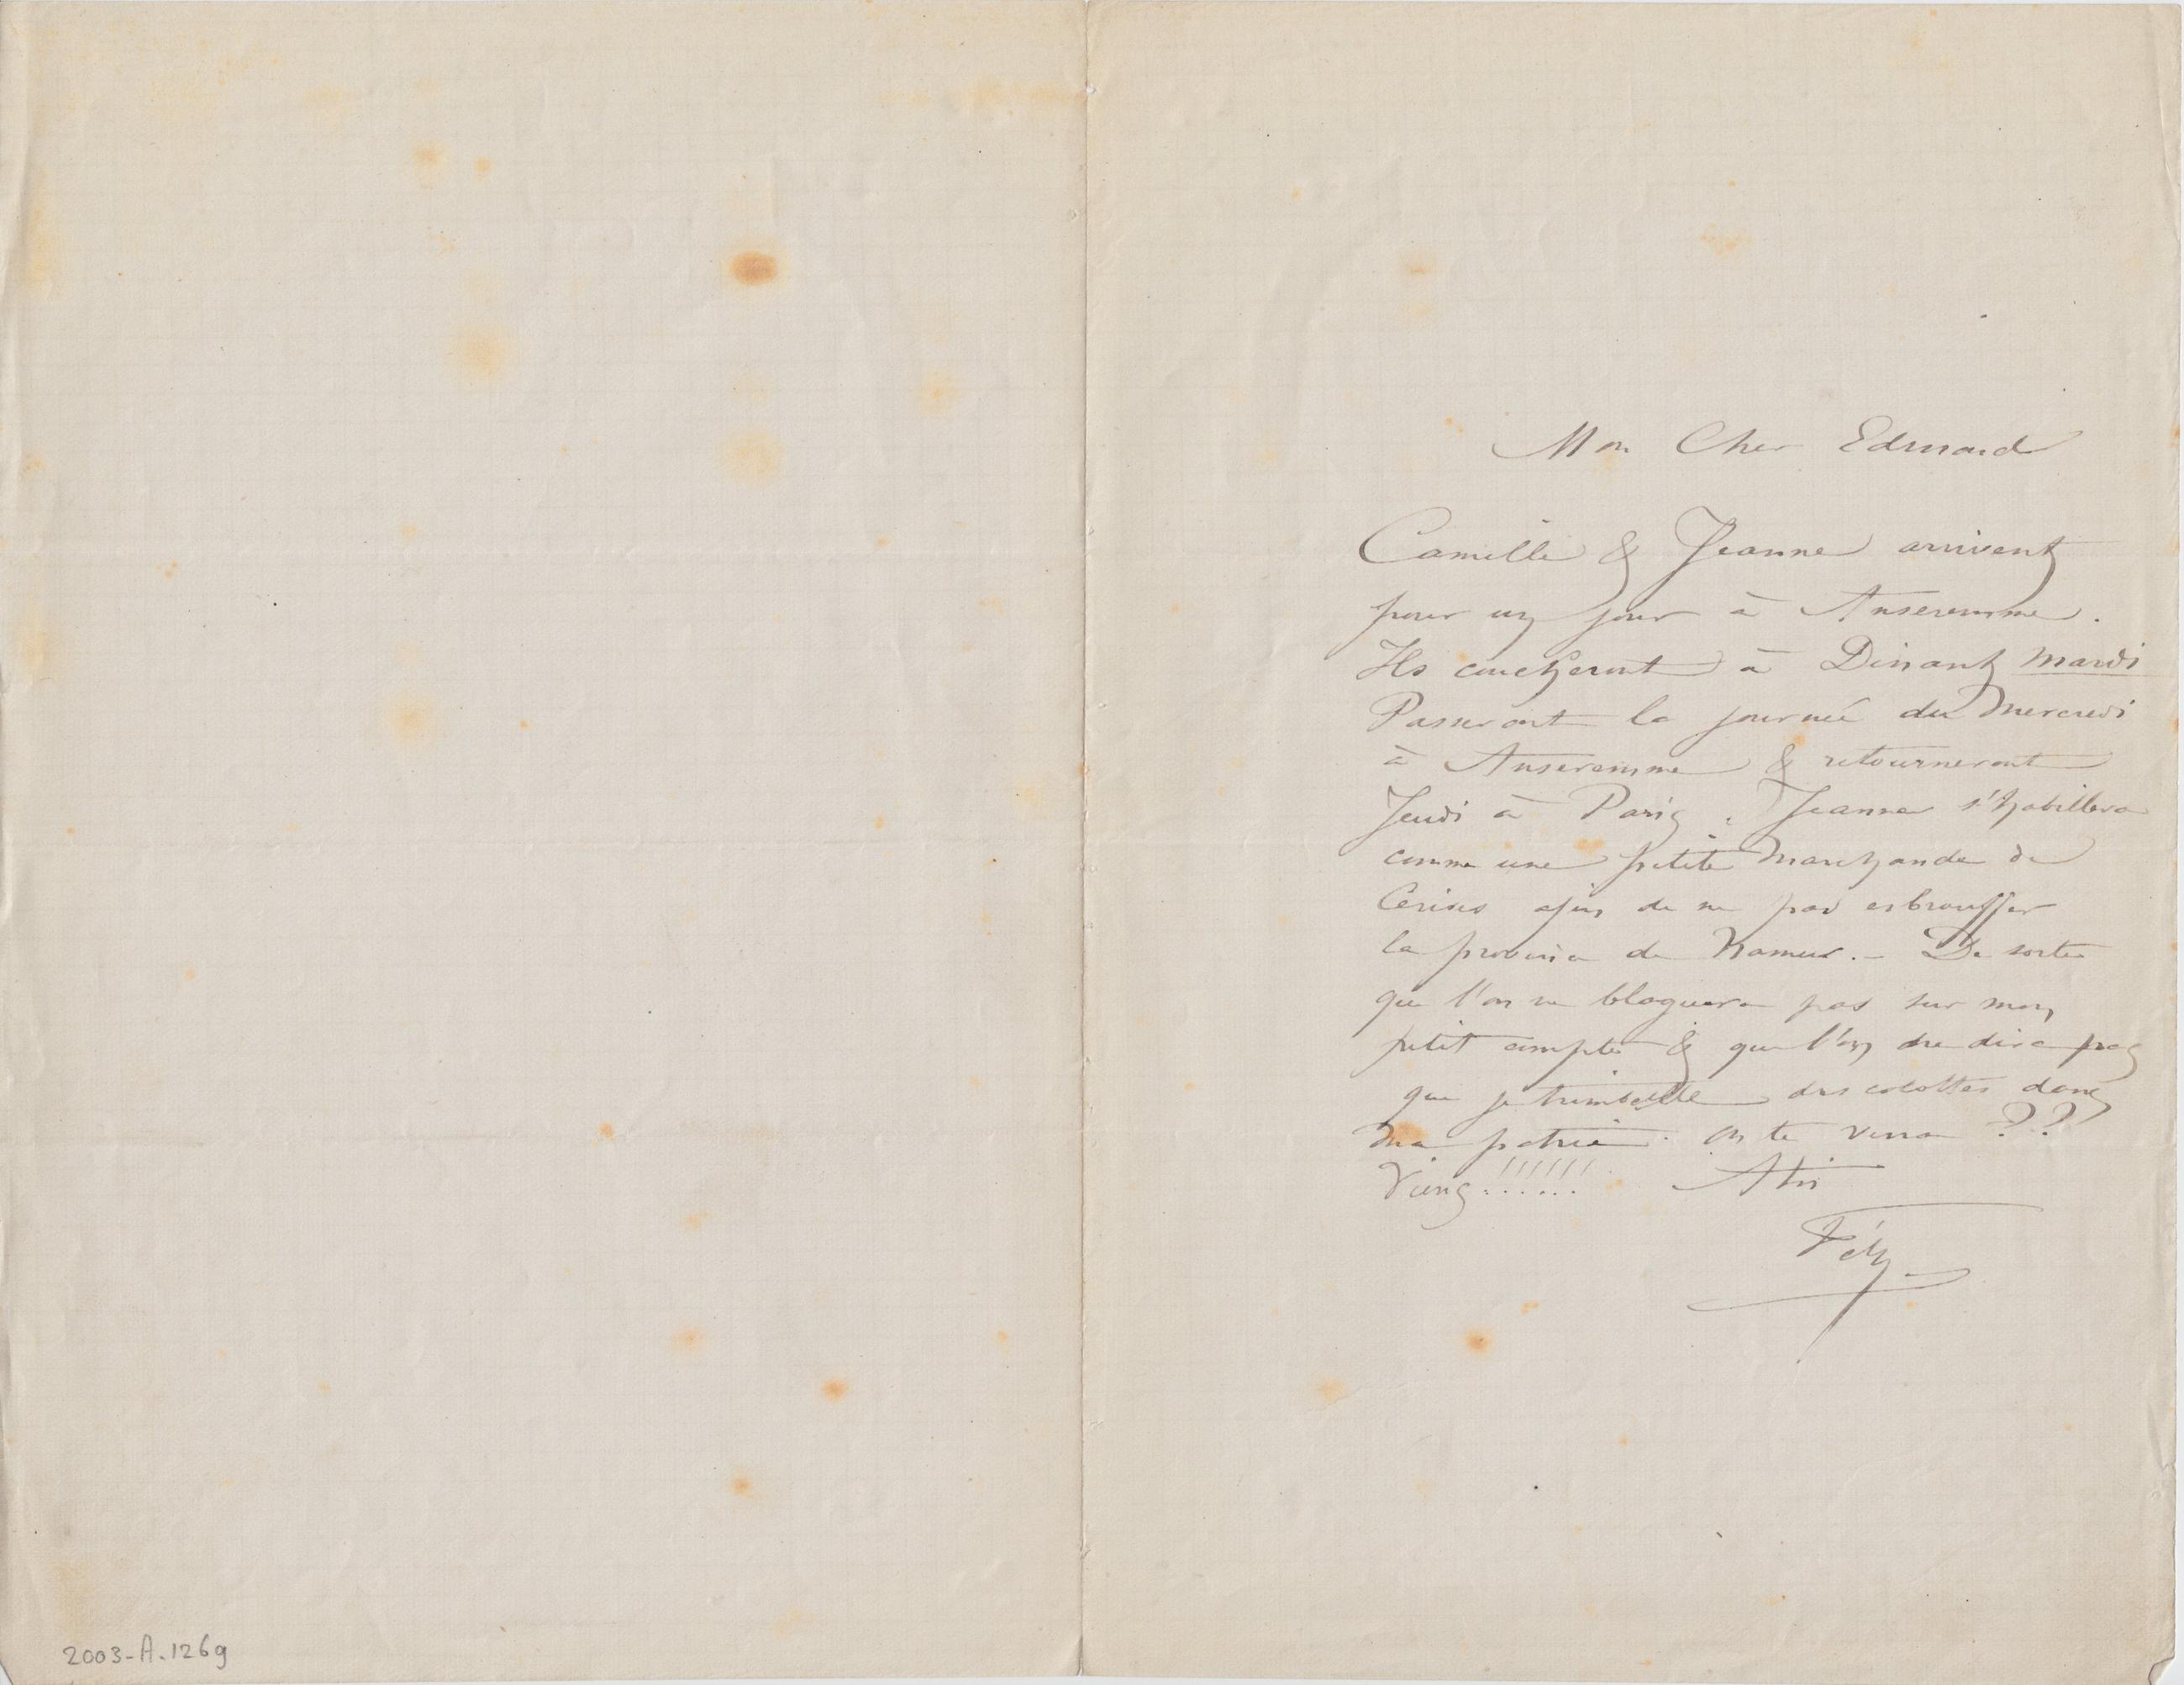 Mon Cher Edmond
Camille & Jeanne arrivent
pour un jour à Anseremme.
Ils coucheront à Dinant mardi
Passeront la journée du Mercredi
à Anseremme & retourneront
Jeudi à Paris. Jeanne s'habillera
comme une petite Marchande de
Cerises afin de ne pas esbrouffer
la province de Namur. - De sorte
que l'on ne bloguera pas sur mon
petit compte & que l'on ne dira pas
que je trimballe des cocottes dans
ma patrie. On te verra ??
Viens !!!!!! A toi
Fély
2003-A.1269